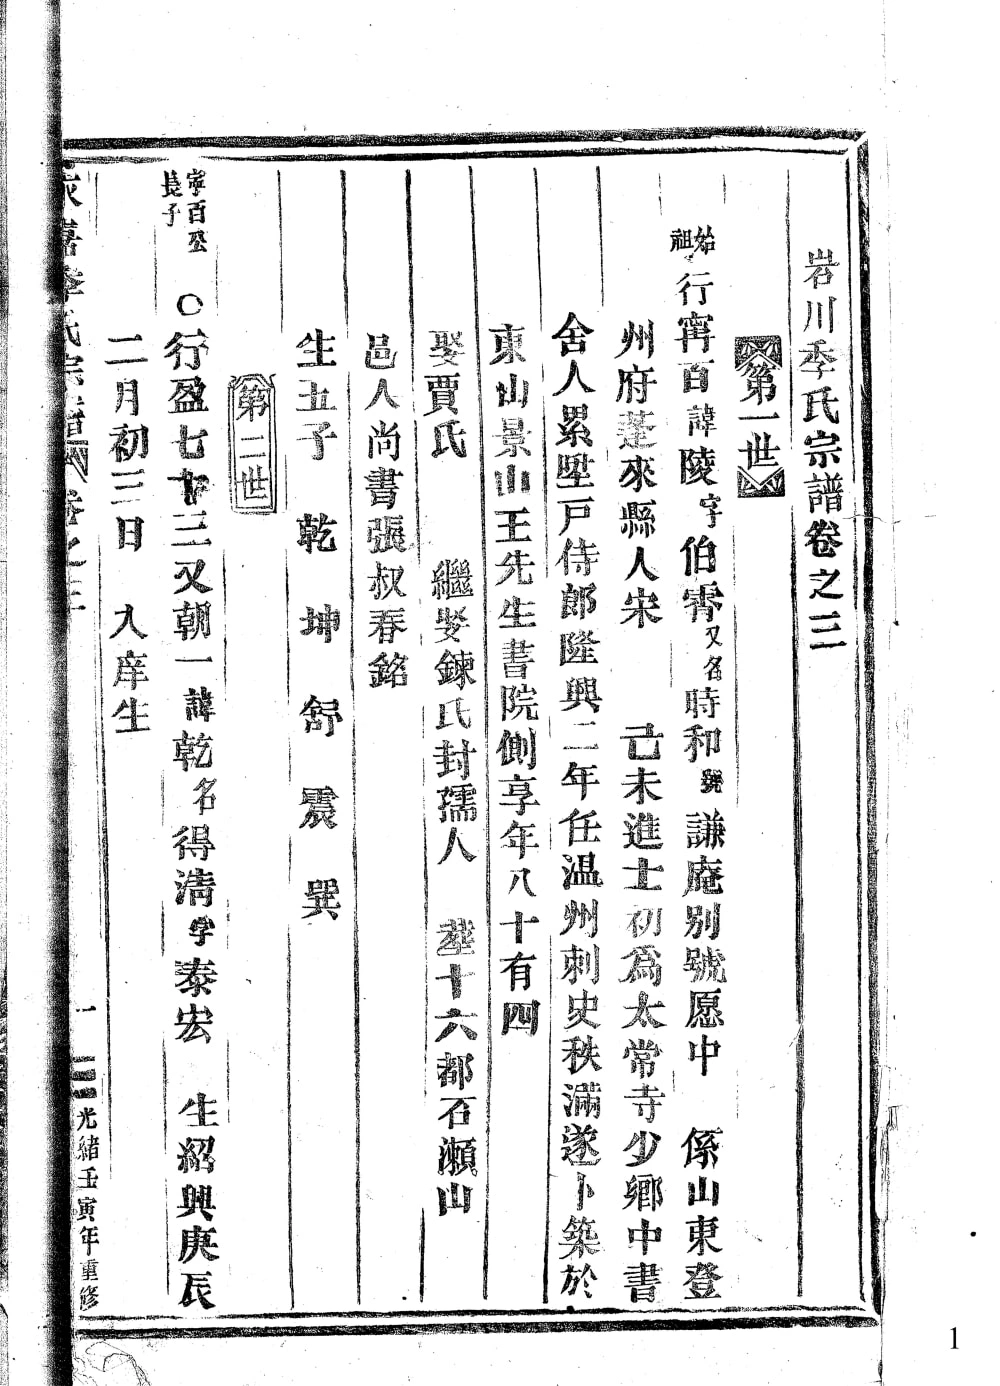 岩川季氏宗譜卷之三
第一世
始祖 行甯百諱陵字伯霄又名時和號謙庵别號愿中 係山東登
州府蓬來縣人宋 己未進士初爲太常寺少卿中書
舍人累陞戸侍郎隆興二年任温州刺史秩滿遂卜築於
東山景山王先生書院側享年八十有四
娶賈氏 繼娶鍊氏封孺人 塟十六都石瀬山
邑人尚書張叔春銘
生五子 乾 坤 舒 震 巽
第二世
寧百公長子 〇行盈七十三又朝一諱乾名得淸字泰宏 生紹興庚辰
二月初三日 入庠生
嘉季氏宗譜 卷之三 一 光緒壬寅年重修
1